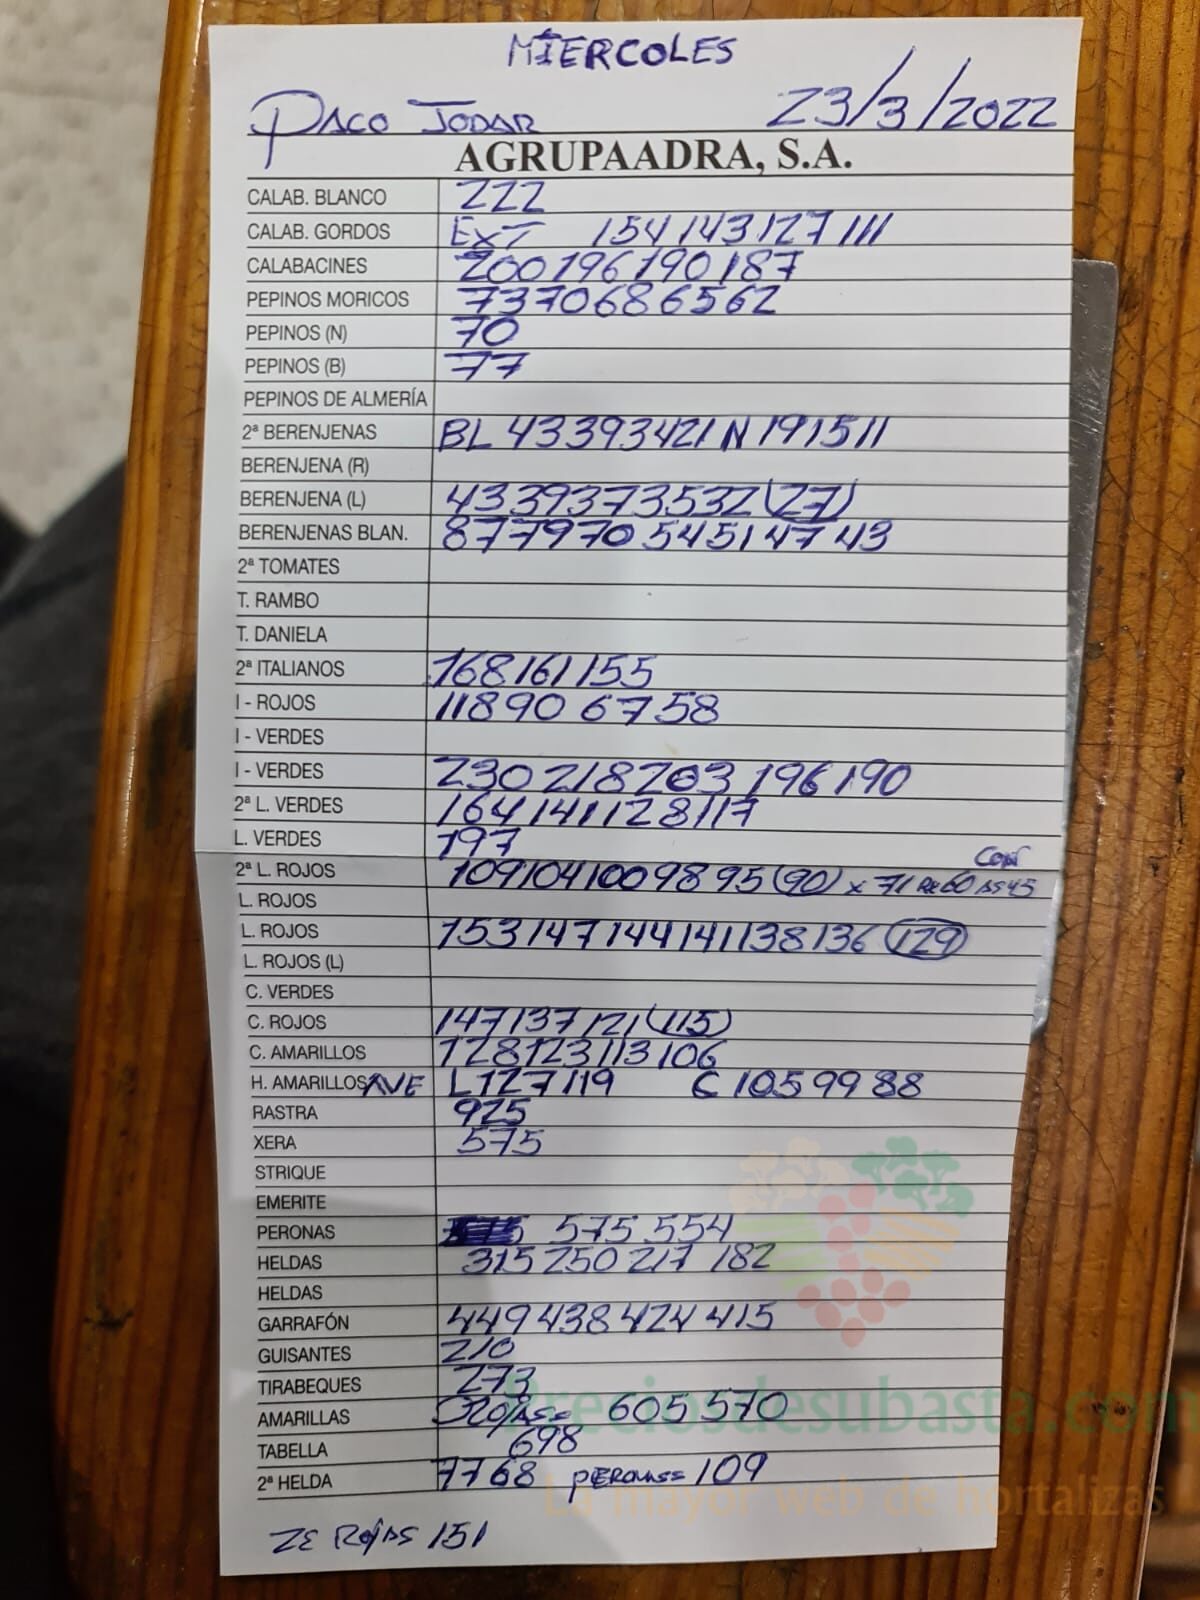 MIERCOLES
PACO JODAR 23/3/2022
AGRUPAADRA, S.A.
CALAB. BLANCO 222
CALAB. GORDOS EXT 154 143 127 111
CALABACINES 200 196 190 187
PEPINOS MORICOS 73 70 68 65 62
PEPINOS (N) 70
PEPINOS (B) 77
PEPINOS DE ALMERÍA
2ª BERENJENAS BL 43 39 34 21 N 19 15 11
BERENJENA (R)
BERENJENA (L) 43 39 37 35 32 (27)
BERENJENAS BLAN. 87 79 70 54 51 47 43
2ª TOMATES
T. RAMBO
T. DANIELA
2ª ITALIANOS 168 161 155
I - ROJOS 118 90 67 58
I - VERDES
I - VERDES 230 218 203 196 190
2ª L. VERDES 164 141 128 117
L. VERDES 197
2ª L. ROJOS 109 104 100 98 95 (90) x 71 RE 60 AS 45
L. ROJOS
L. ROJOS 153 147 144 141 138 136 (129)
L. ROJOS (L)
C. VERDES
C. ROJOS 147 137 121 (115)
C. AMARILLOS 128 123 113 106
H. AMARILLOS AVE L 127 119 C 105 99 88
RASTRA 925
XERA 575
STRIQUE
EMERITE
PERONAS 575 554
HELDAS 315 250 217 182
HELDAS
GARRAFÓN 449 438 424 415
GUISANTES 210
TIRABEQUES 273
AMARILLAS ROJAS= 605 570
TABELLA 698
2ª HELDA 77 68 PERONAS= 109
2E ROJAS 151
Preciosdesubasta.com
La mayor web de hortalizas